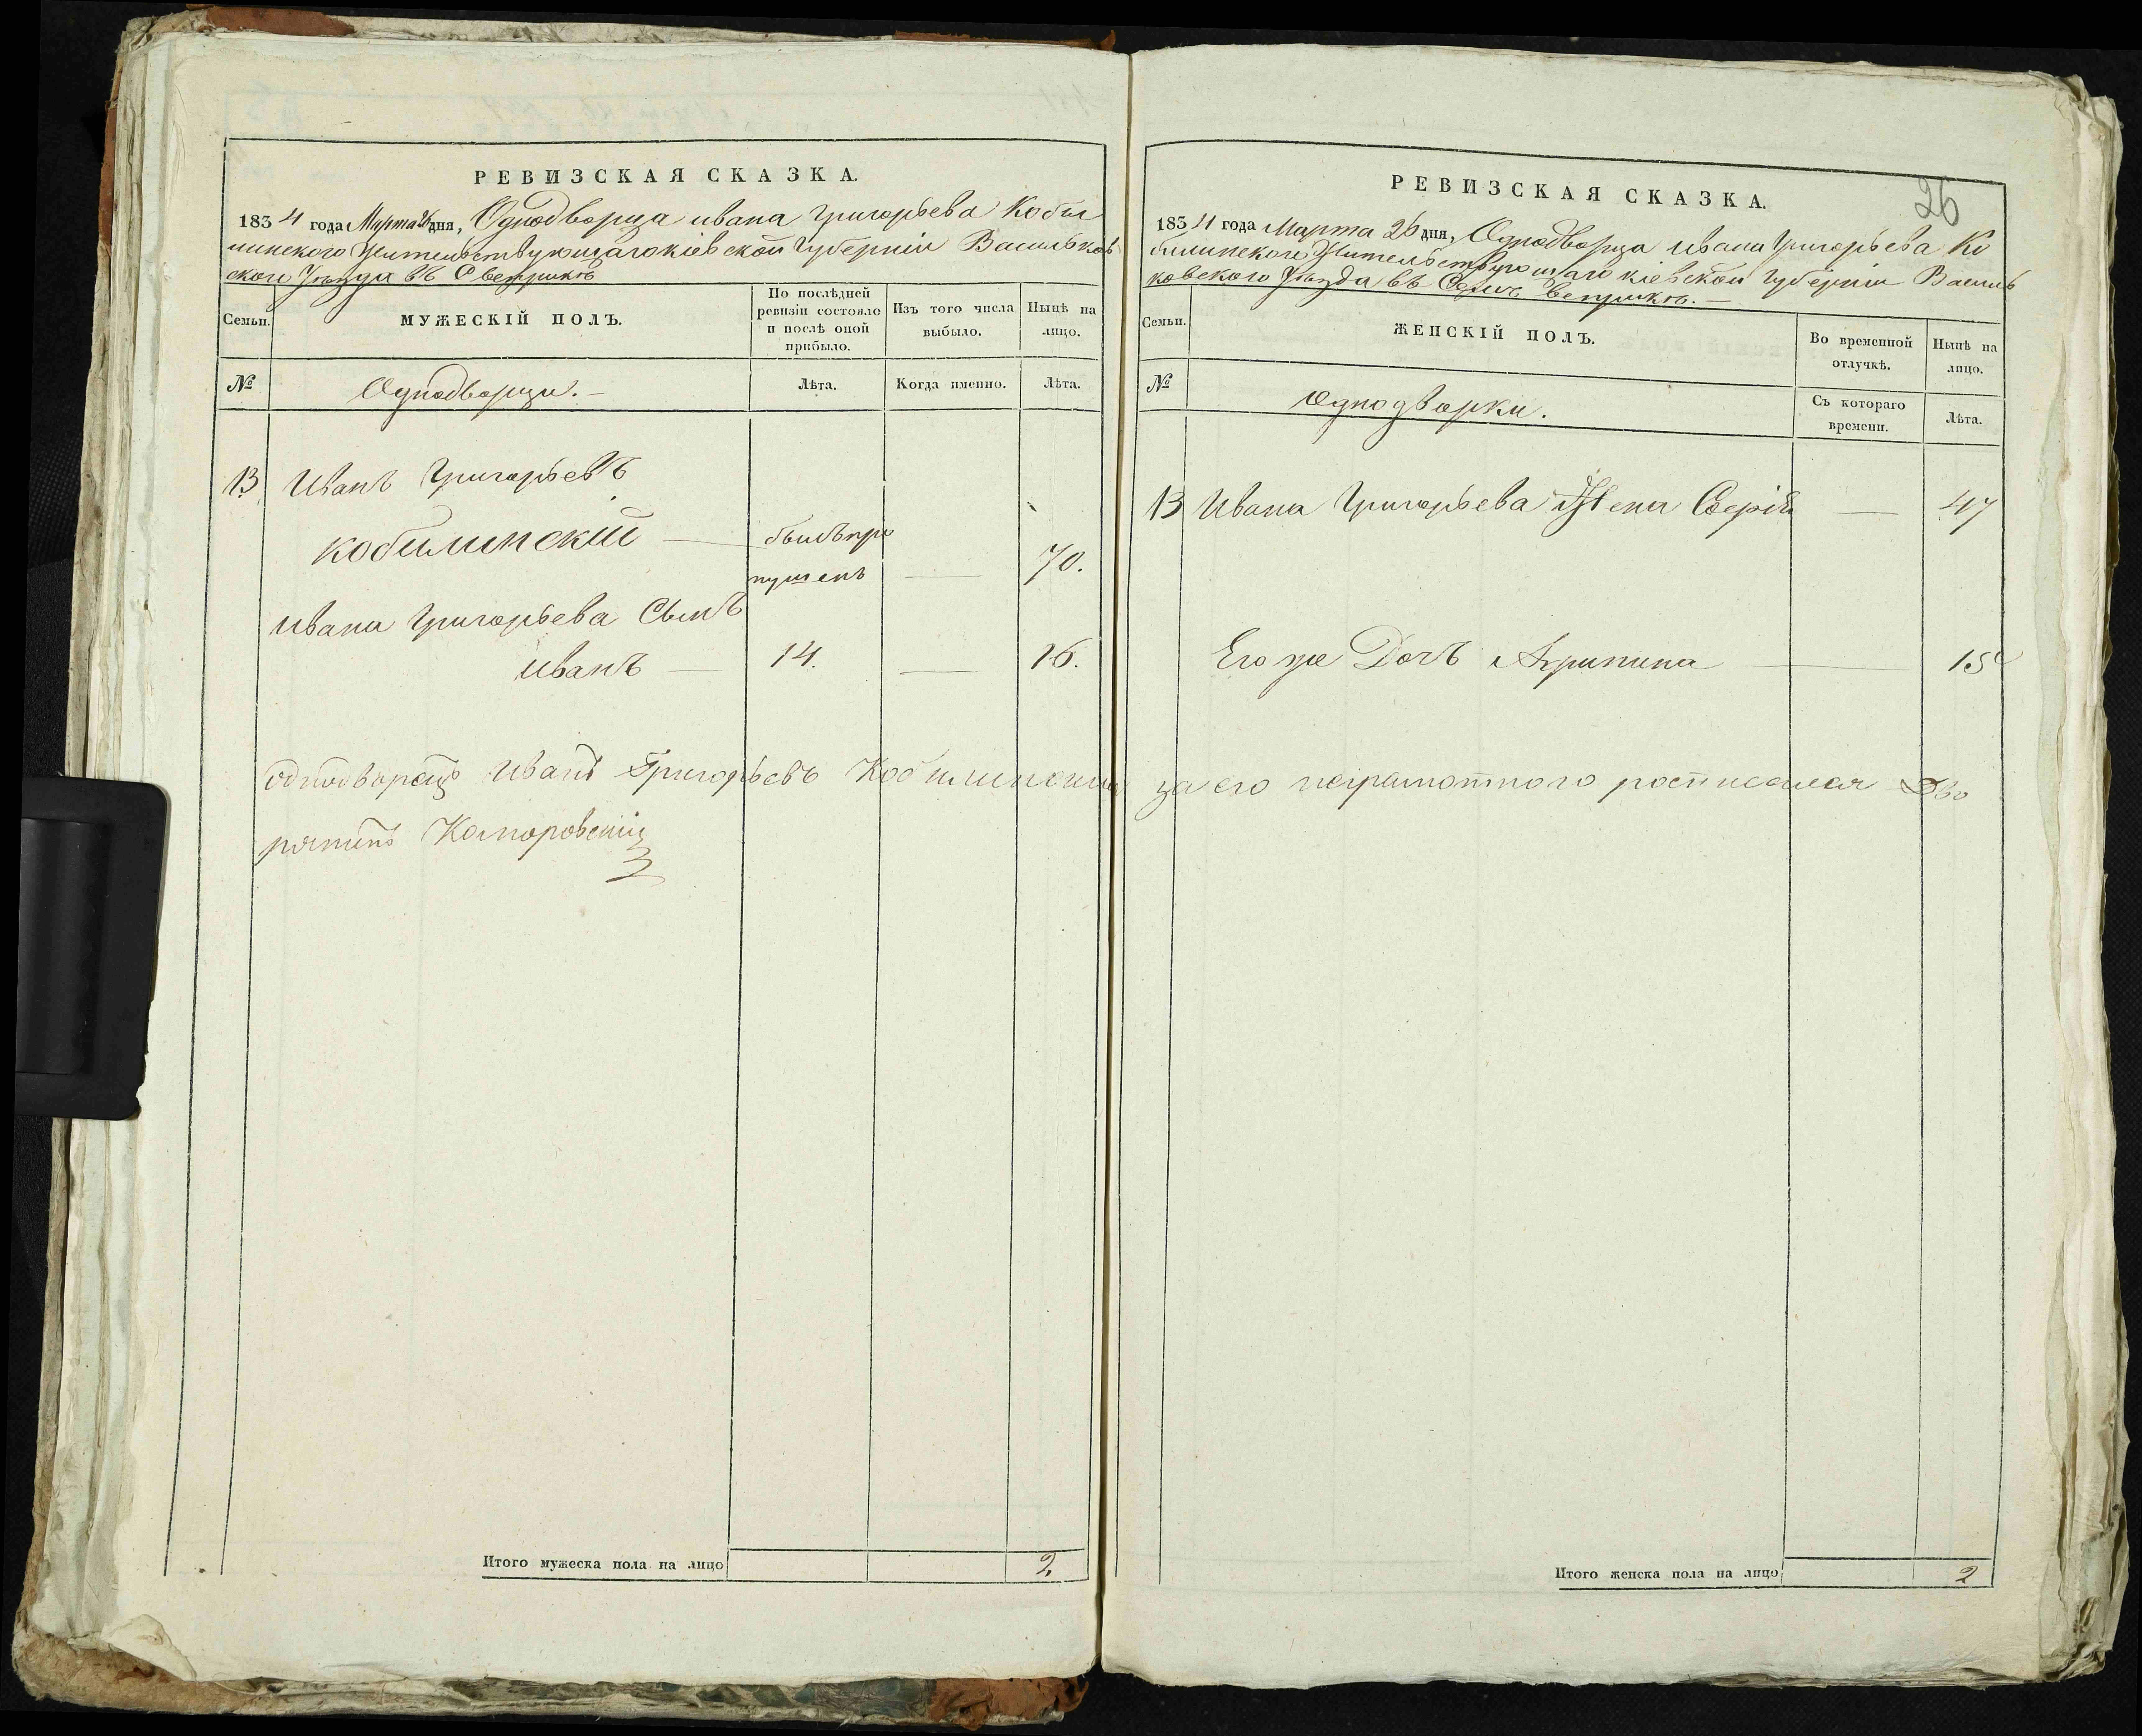 РЕВИЗСКАЯ СКАЗКА.
1834 года Марта 26 дня, Однодворца ивана Григорьева Кобы
линского Жительствующаго киевской Губерніи Васильков
ского Уезда въ С Веприкъ
Семьи.
МУЖЕСКІЙ ПОЛЪ.
По послѣдней ревизіи состояло и послѣ оной прибыло.
Изъ того числа выбыло.
Нынѣ на лицо.
№
Однодворцы.
Лѣта.
Когда именно.
Лѣта.
13 Иванъ Григорьевъ
кобилинскій — былъ про
пущенъ — 70.
ивана Григорьева Сынъ
иванъ — 14. — 16.
однодворецъ Иванъ Григорьевъ Кобилинский
рянинъ Коморовский
Итого мужеска пола на лицо 2.
26
РЕВИЗСКАЯ СКАЗКА.
1834 года Марта 26 дня, Однодворца ивана Григорьева Ко
билинского Жительствующаго кіевской Губерніи Василь
ковского Уезда въ Селе Веприкъ. —
Семьи.
ЖЕНСКІЙ ПОЛЪ.
Во временной отлучкѣ.
Нынѣ на лицо.
№
Однодворки.
Съ котораго времени.
Лѣта.
13 Ивана Григорьева Жена — 47
Его же Дочъ Агрипина — 15
за его неграмотного росписался Дво
Итого женска пола на лицо 2